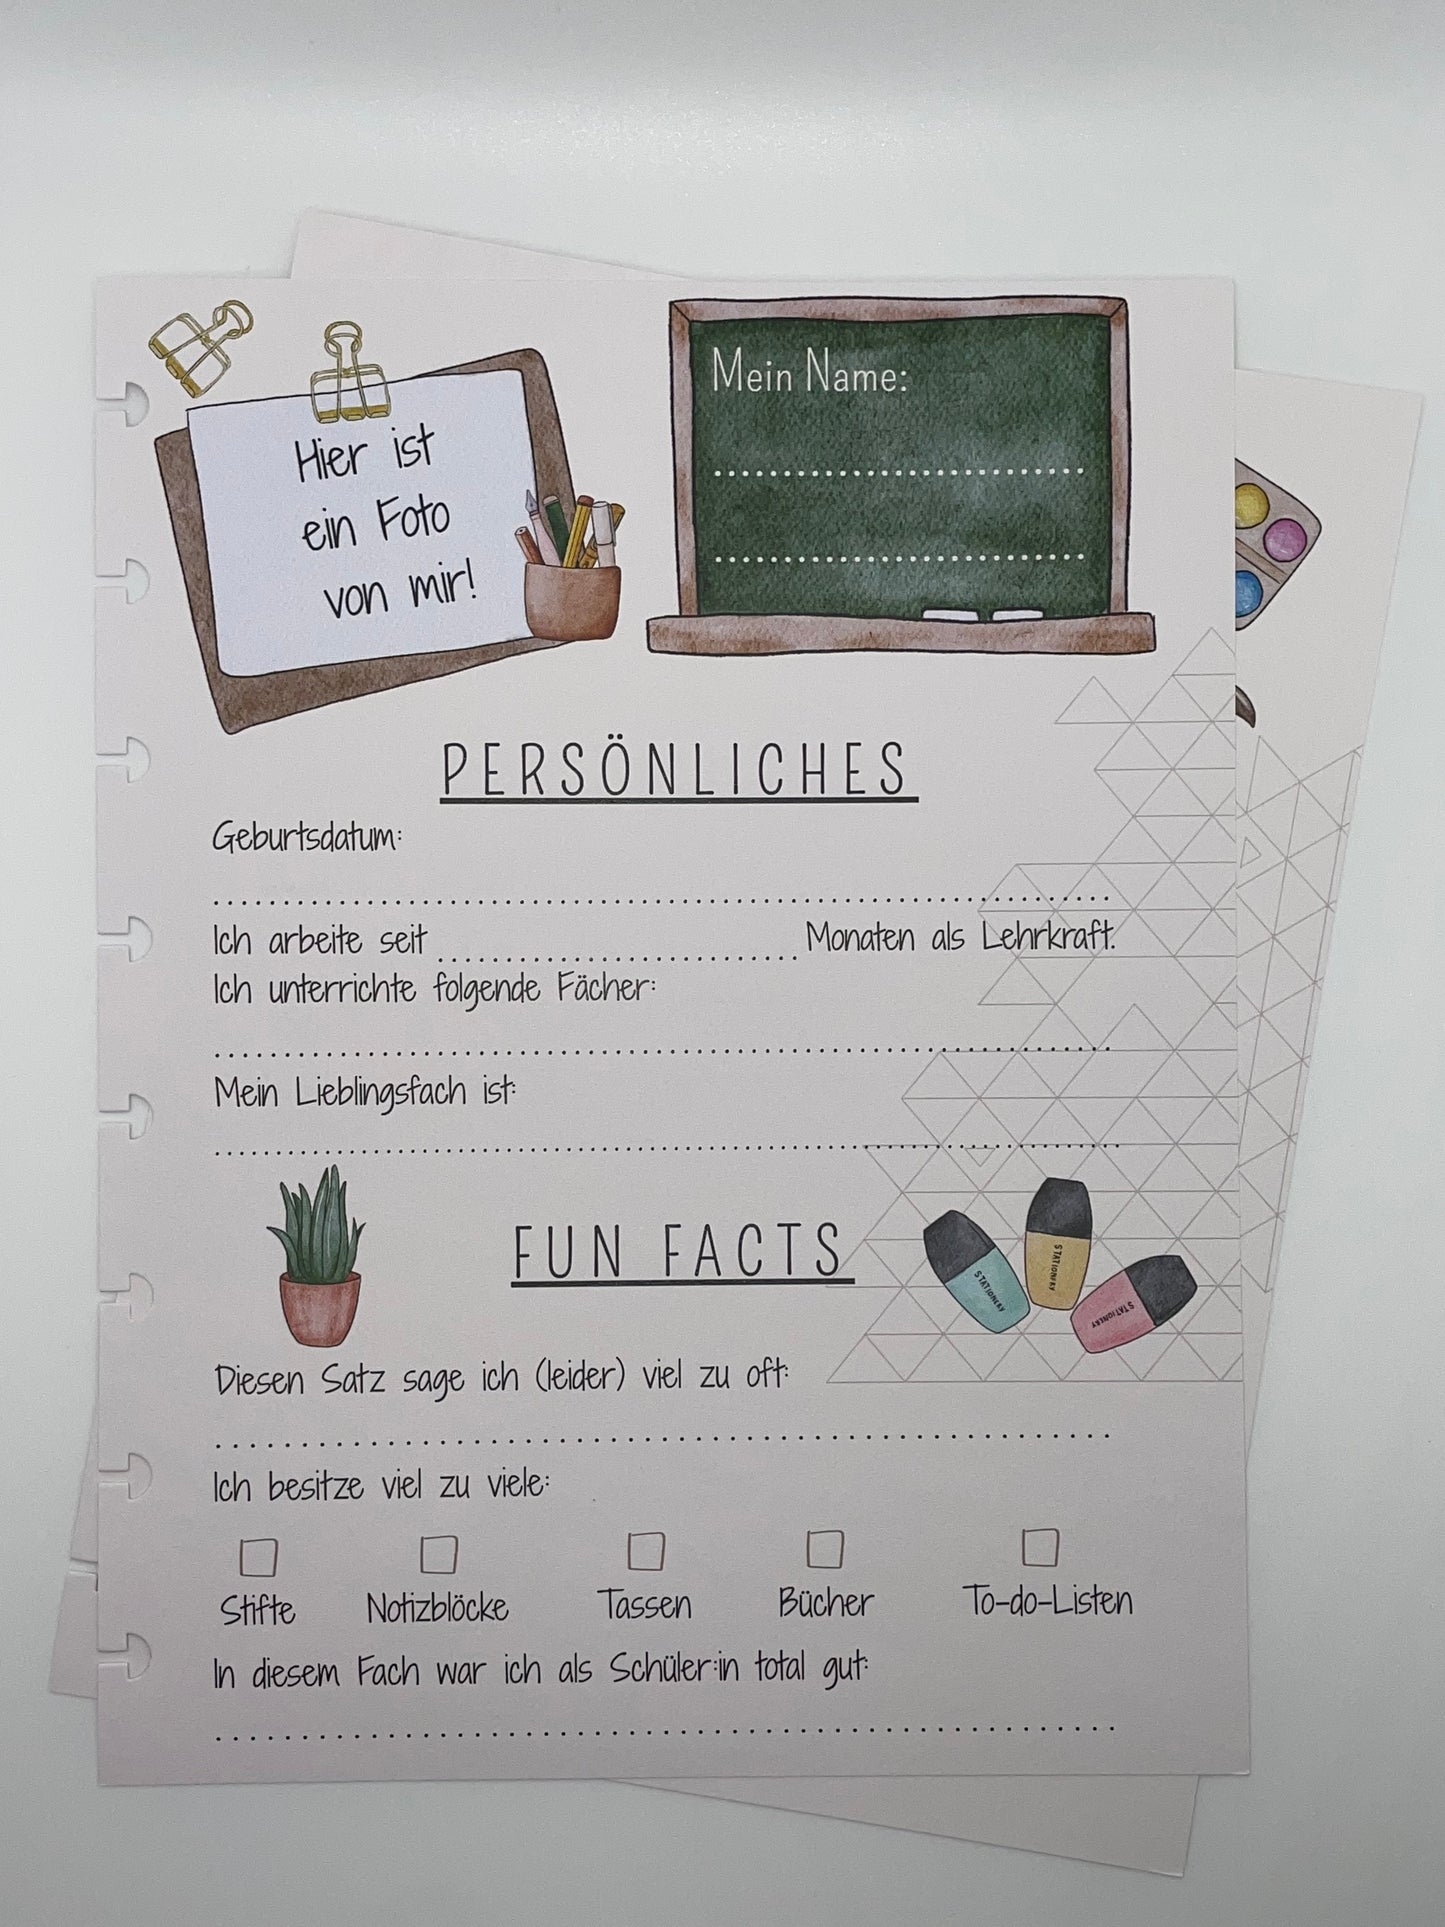 Hier ist
ein Foto
von mir!
Mein Name:
PERSÖNLICHES
Geburtsdatum:
Ich arbeite seit Monaten als Lehrkraft.
Ich unterrichte folgende Fächer:
Mein Lieblingsfach ist:
FUN FACTS
STATIONERY
STATIONERY
STATIONERY
Diesen Satz sage ich (leider) viel zu oft:
Ich besitze viel zu viele:
Stifte Notizblöcke Tassen Bücher To-do-Listen
In diesem Fach war ich als Schüler:in total gut: